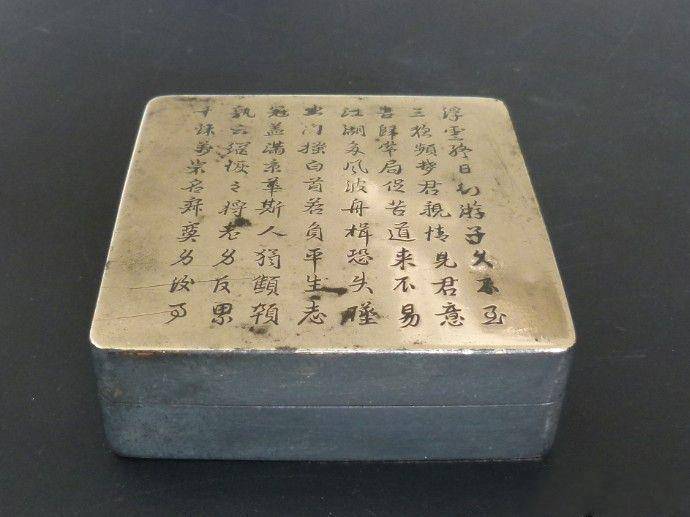 浮雲終日行游子久不至
三夜頻夢君親情見君意
告歸常局促苦道来不易
江湖多風波舟楫恐失墜
出門搔白首若負平生志
冠盖滿京華斯人獨顦顇
孰云網恢々將老身反累
千秋萬歲名寂寞身後事